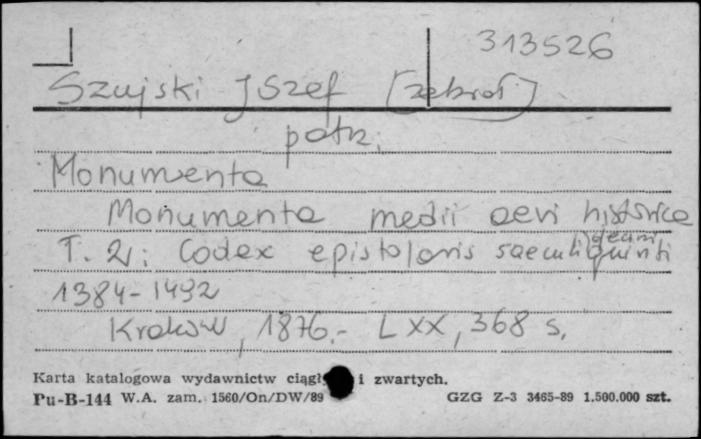 313526
Szujski Jszef [zebrał]
patrz.
Monumenta
Monumenta medii aevi historica
T. 2: Codex epistolaris saeculi decimi quinti
1384-1492
Kraków, 1876.- LXX, 368 s.
Karta katalogowa wydawnictw ciągł i zwartych.
Pu-B-144 W.A. zam. 1560/On/DW/89 GZG Z-3 3465-89 1.500.000 szt.